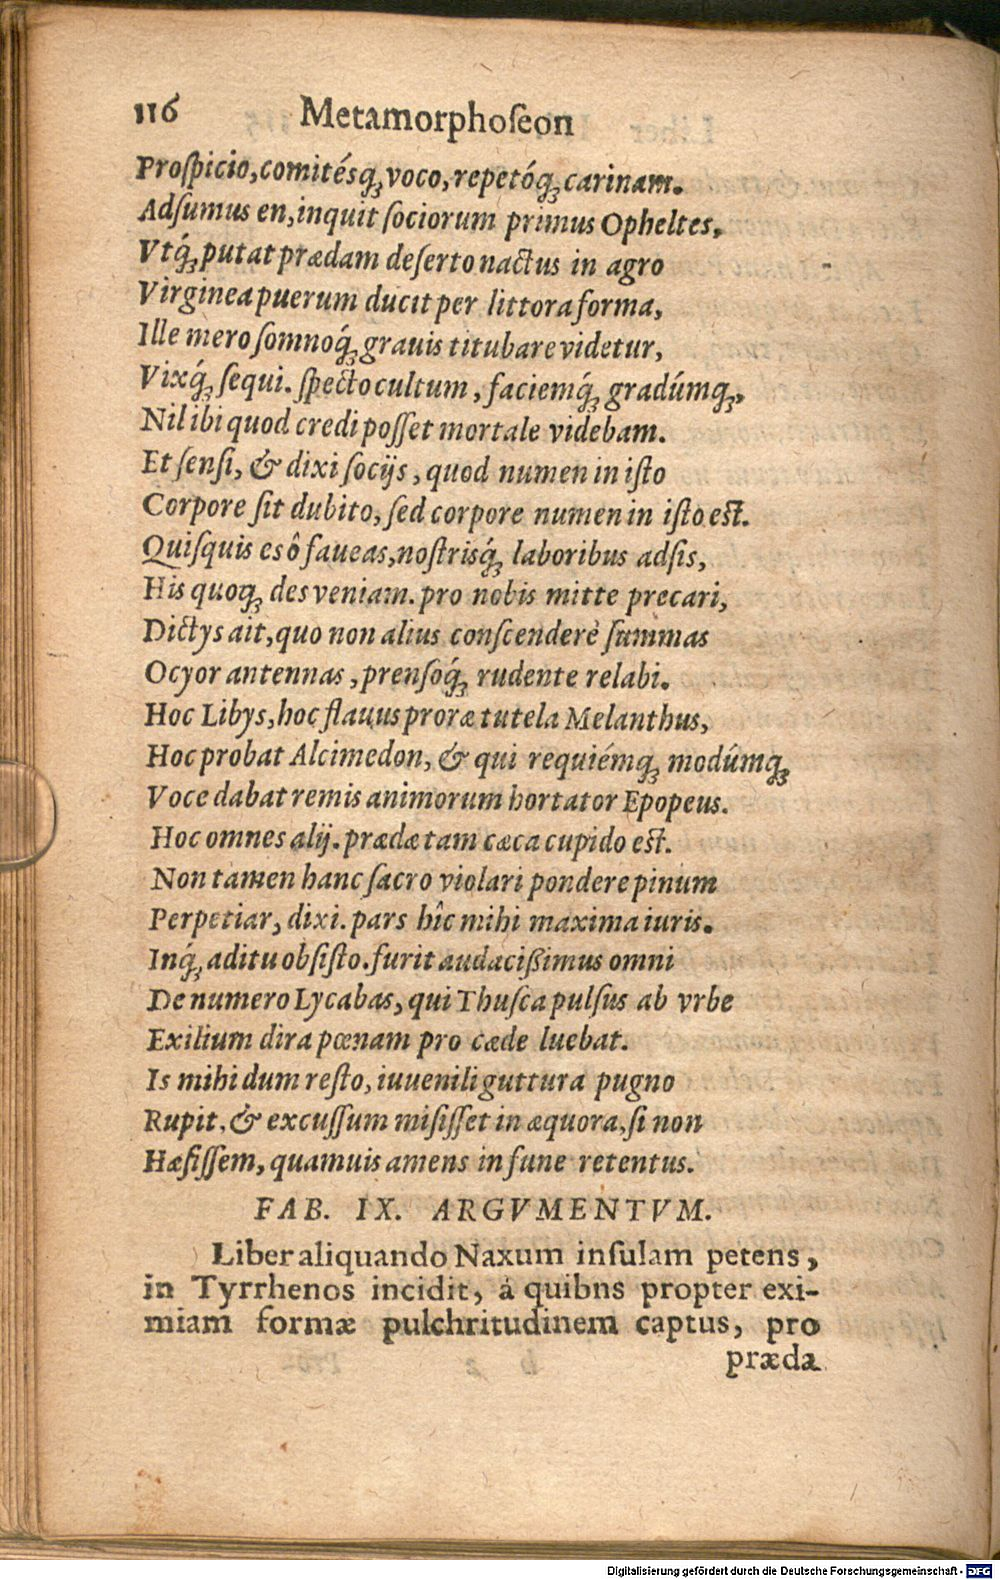 116 Metamorphoſeon
Proſpicio, comitésq́; voco, repetóq́; carinam.
Adſumus en, inquit ſociorum primus Opheltes,
Vtq́; putat prædam deſerto nactus in agro
Virginea puerum ducit per littora forma,
Ille mero ſomnoq́; grauis titubare videtur,
Vixq́; ſequi. ſpecto cultum, faciemq́; gradúmq;,
Nil ibi quod credi poſſet mortale videbam.
Et ſenſi, & dixi ſocijs, quod numen in iſto
Corpore ſit dubito, ſed corpore numen in iſto eſt.
Quiſquis es ô faueas, noſtrisq́; laboribus adſis,
His quoq; des veniam. pro nobis mitte precari,
Dictys ait, quo non alius conſcendere ſummas
Ocyor antennas, prenſoq́; rudente relabi.
Hoc Libys, hoc flauus proræ tutela Melanthus,
Hoc probat Alcimedon, & qui requiémq; modúmq;
Voce dabat remis animorum hortator Epopeus.
Hoc omnes alij. prædæ tam cæca cupido eſt.
Non tamen hanc ſacro violari pondere pinum
Perpetiar, dixi. pars hîc mihi maxima iuris.
Inq́; aditu obſiſto. furit audacißimus omni
De numero Lycabas, qui Thuſca pulſus ab vrbe
Exilium dira pœnam pro cæde luebat.
Is mihi dum reſto, iuuenili guttura pugno
Rupit, & excuſſum miſiſſet in æquora, ſi non
Hæſiſſem, quamuis amens in fune retentus.
FAB. IX. ARGVMENTVM.
Liber aliquando Naxum inſulam petens,
in Tyrrhenos incidit, á quibns propter exi-
miam formæ pulchritudinem captus, pro
præda
Digitalisierung gefördert durch die Deutsche Forschungsgemeinschaft - DFG